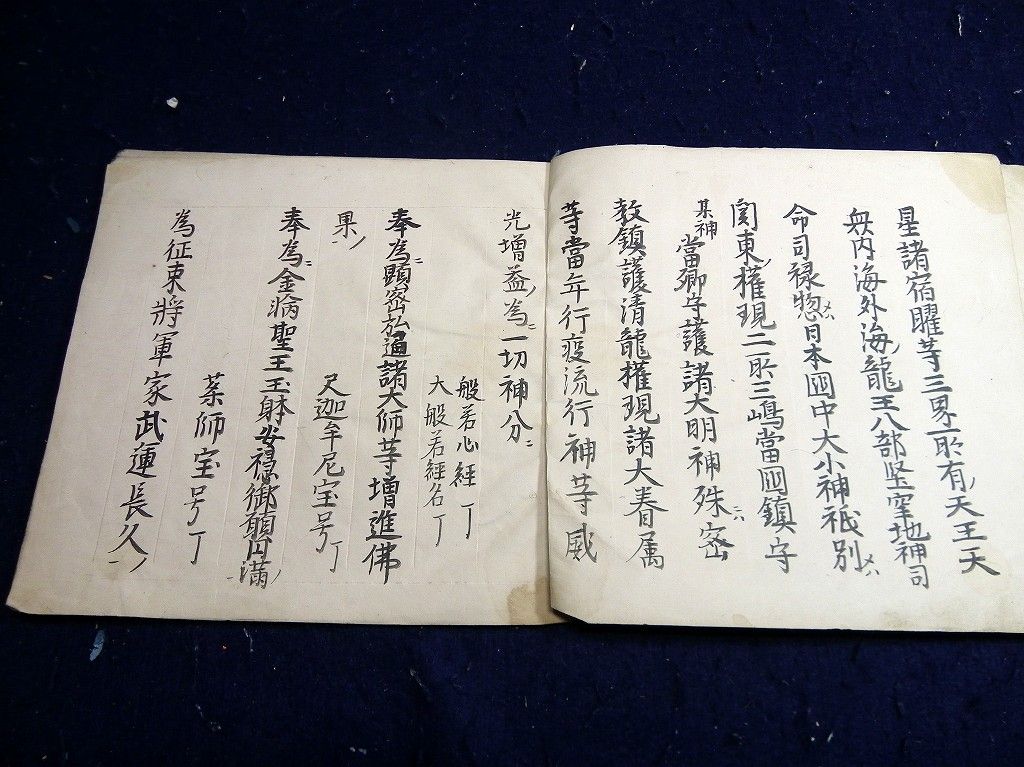 星諸宿曜等三界所有ノ天王天
衆内海外海ノ龍王八部堅窂地神司
命司禄惣メハ日本國中大小神祇別メハ
関東ノ權現二所三嶋當國鎮守
某神當郷守護諸大明神殊ニハ密
教鎮護清龍權現諸大眷属
等當年行疫流行神等威
光増益ノ為ニ一切神分ニ
般若心経丁
大般若経名丁
奉為ニ顕密弘通諸大師等増進佛
果ノ
尺迦牟尼宝号丁
奉為ニ金輪聖王玉躰安穏御願円満ノ
薬師宝号丁
為征東将軍家武運長久ノ